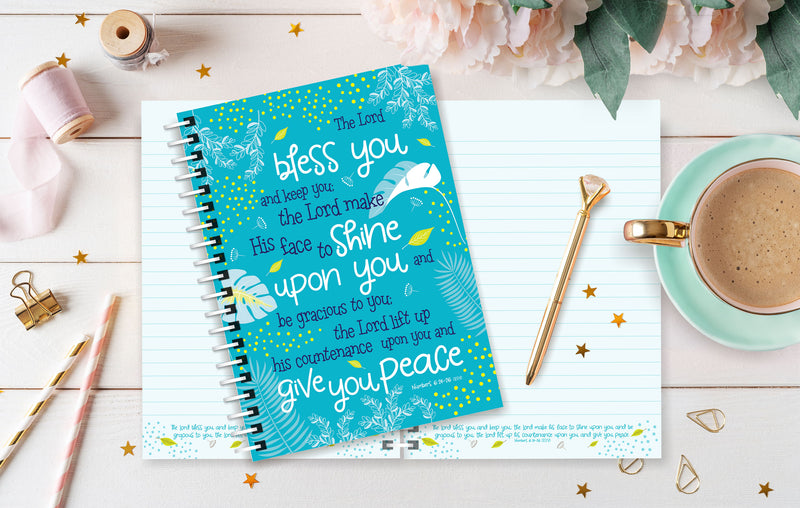 The Lord
bless you
and keep you;
the Lord make
His face to shine
upon you, and
be gracious to you;
the Lord lift up
his countenance upon you and
give you peace
Numbers 6:24-26
The Lord bless you and keep you, the Lord make
gracious to you, the Lord lift
the Lord bless you and keep you, the Lord make his face to shine upon you and be
gracious to you, the Lord lift up his countenance upon you and give you peace
Numbers 6:24-26